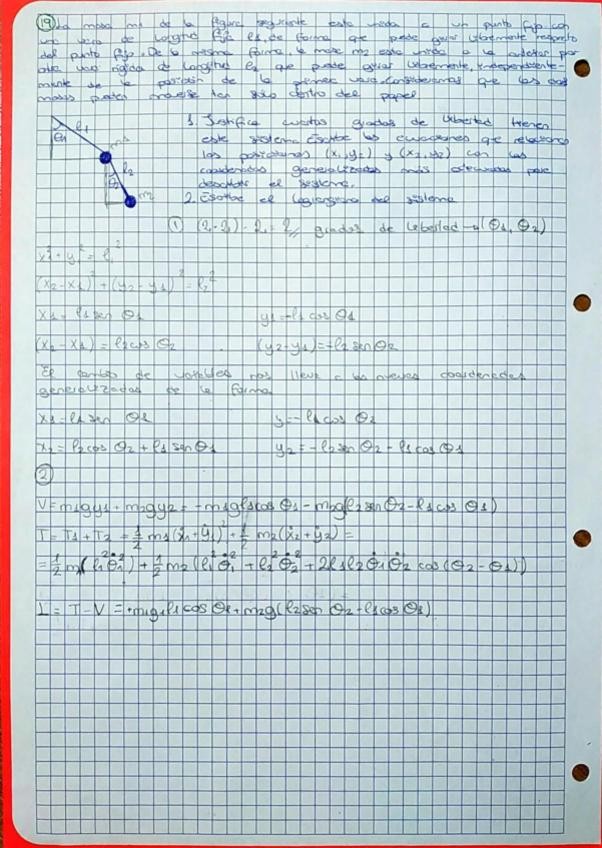 19 La masa m1 de la figura siguiente esta unida a un punto fijo con
una vara de longitud fija l1, de forma que puede girar libremente respecto
del punto fijo. De la misma forma, la masa m2 esta unida a la anterior por
otra vara rigida de longitud l2 que puede girar libremente, independiente-
mente de la posición de la primera vara. Consideramos que las dos
masas pueden moverse tan solo dentro del papel
l1
θ1
m1
l2
θ2
m2
1. Justifica cuantos grados de libertad tienen
este sistema. Escribe las ecuaciones que relacionan
las posiciones (x1,y1) y (x2,y2) con las
coordenadas generalizadas más adecuadas para
describir el sistema.
2. Escribe el lagrangiano del sistema
① (2·2) - 2 = 2 grados de libertad → (θ1, θ2)
x1² + y1² = l1²
(x2-x1)² + (y2-y1)² = l2²
x1 = l1 sen θ1 y1 = -l1 cos θ1
(x2-x1) = l2 cos θ2 (y2-y1) = -l2 sen θ2
El cambio de variables nos lleva a las nuevas coordenadas
generalizadas de la forma
x1 = l1 sen θ1 y = -l1 cos θ1
x2 = l2 cos θ2 + l1 sen θ1 y2 = -l2 sen θ2 - l1 cos θ1
②
V = m1gy1 + m2gy2 = -m1gl1 cos θ1 - m2g(l2 sen θ2 - l1 cos θ1)
T = T1 + T2 = 1/2 m1(ẋ1 + ẏ1)² + 1/2 m2(ẋ2 + ẏ2) =
= 1/2 m1(l1²θ̇1²) + 1/2 m2(l1²θ̇1² + l2²θ̇2² + 2l1l2θ̇1θ̇2 cos(θ2-θ1))
L = T - V = +m1gl1 cos θ1 + m2g(l2 sen θ2 - l1 cos θ1)